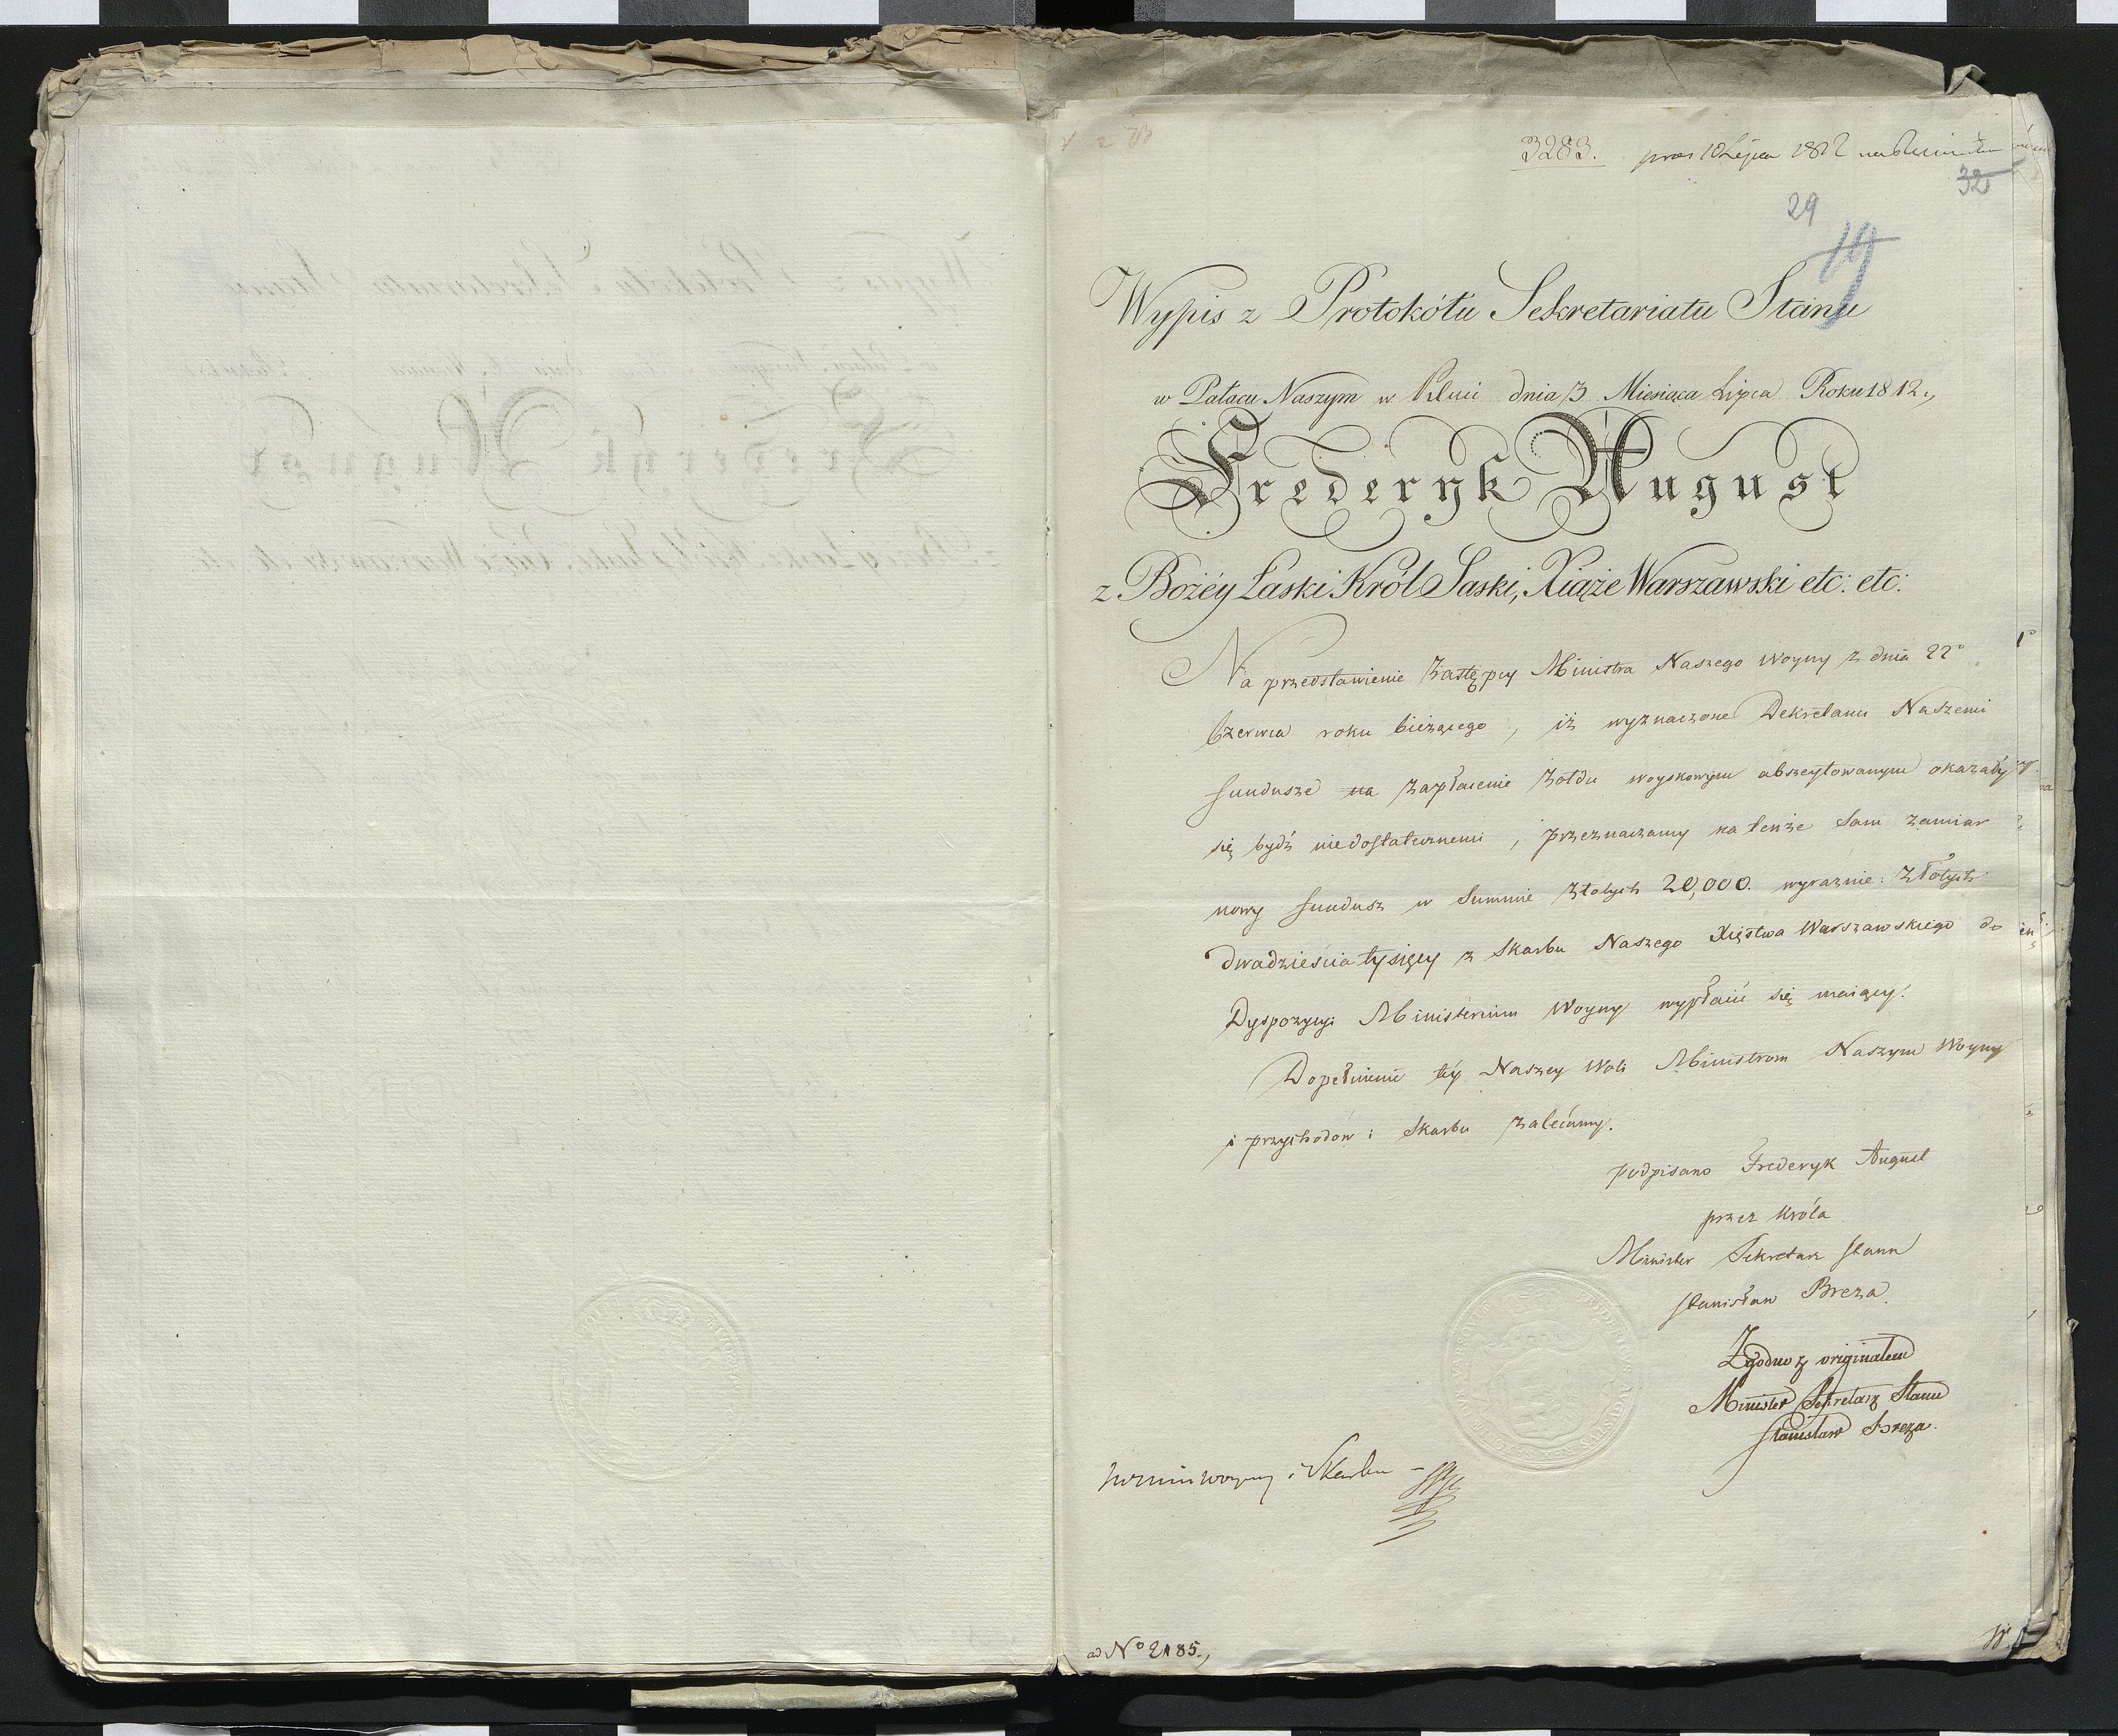 3283. pres 10 Lipca 1812
32
29
19
Wypis z Protokółu Sekretariatu Stanu
w Pałacu Naszym w Pilnic dnia 3 Miesiąca Lipca Roku 1812.,
Frederyk August
z Bożéy Łaski Król Saski, Xiąże Warszawski etc: etc:
Na przedstawienie Zastępcy Ministra Naszego Woyny z dnia 22°
Czerwca roku bieżącego, iż wyznaczone Dekretami Naszemi
fundusze na zapłacenie żołdu woyskowym abszeytowanym okazały
się bydź niedostatecznemi, przeznaczamy na tenże sam zamiar
nowy fundusz w Summie złotych 20,000. wyraznie: złotych
dwadzieścia tysięcy z Skarbu Naszego Xięstwa Warszawskiego do
Dyspozycyi Ministerium Woyny wypłacić się maiący.
Dopełnienie téy Naszey Woli Ministrom Naszym Woyny
i przychodów i Skarbu zalecamy.
podpisano Frederyk August
przez Króla
Minister Sekretarz Stanu
Stanisław Breza
Zgodno z originałem
Minister Sekretarz Stanu
Stanisław Breza.
woyny i Skarbu
ad N° 2185.,